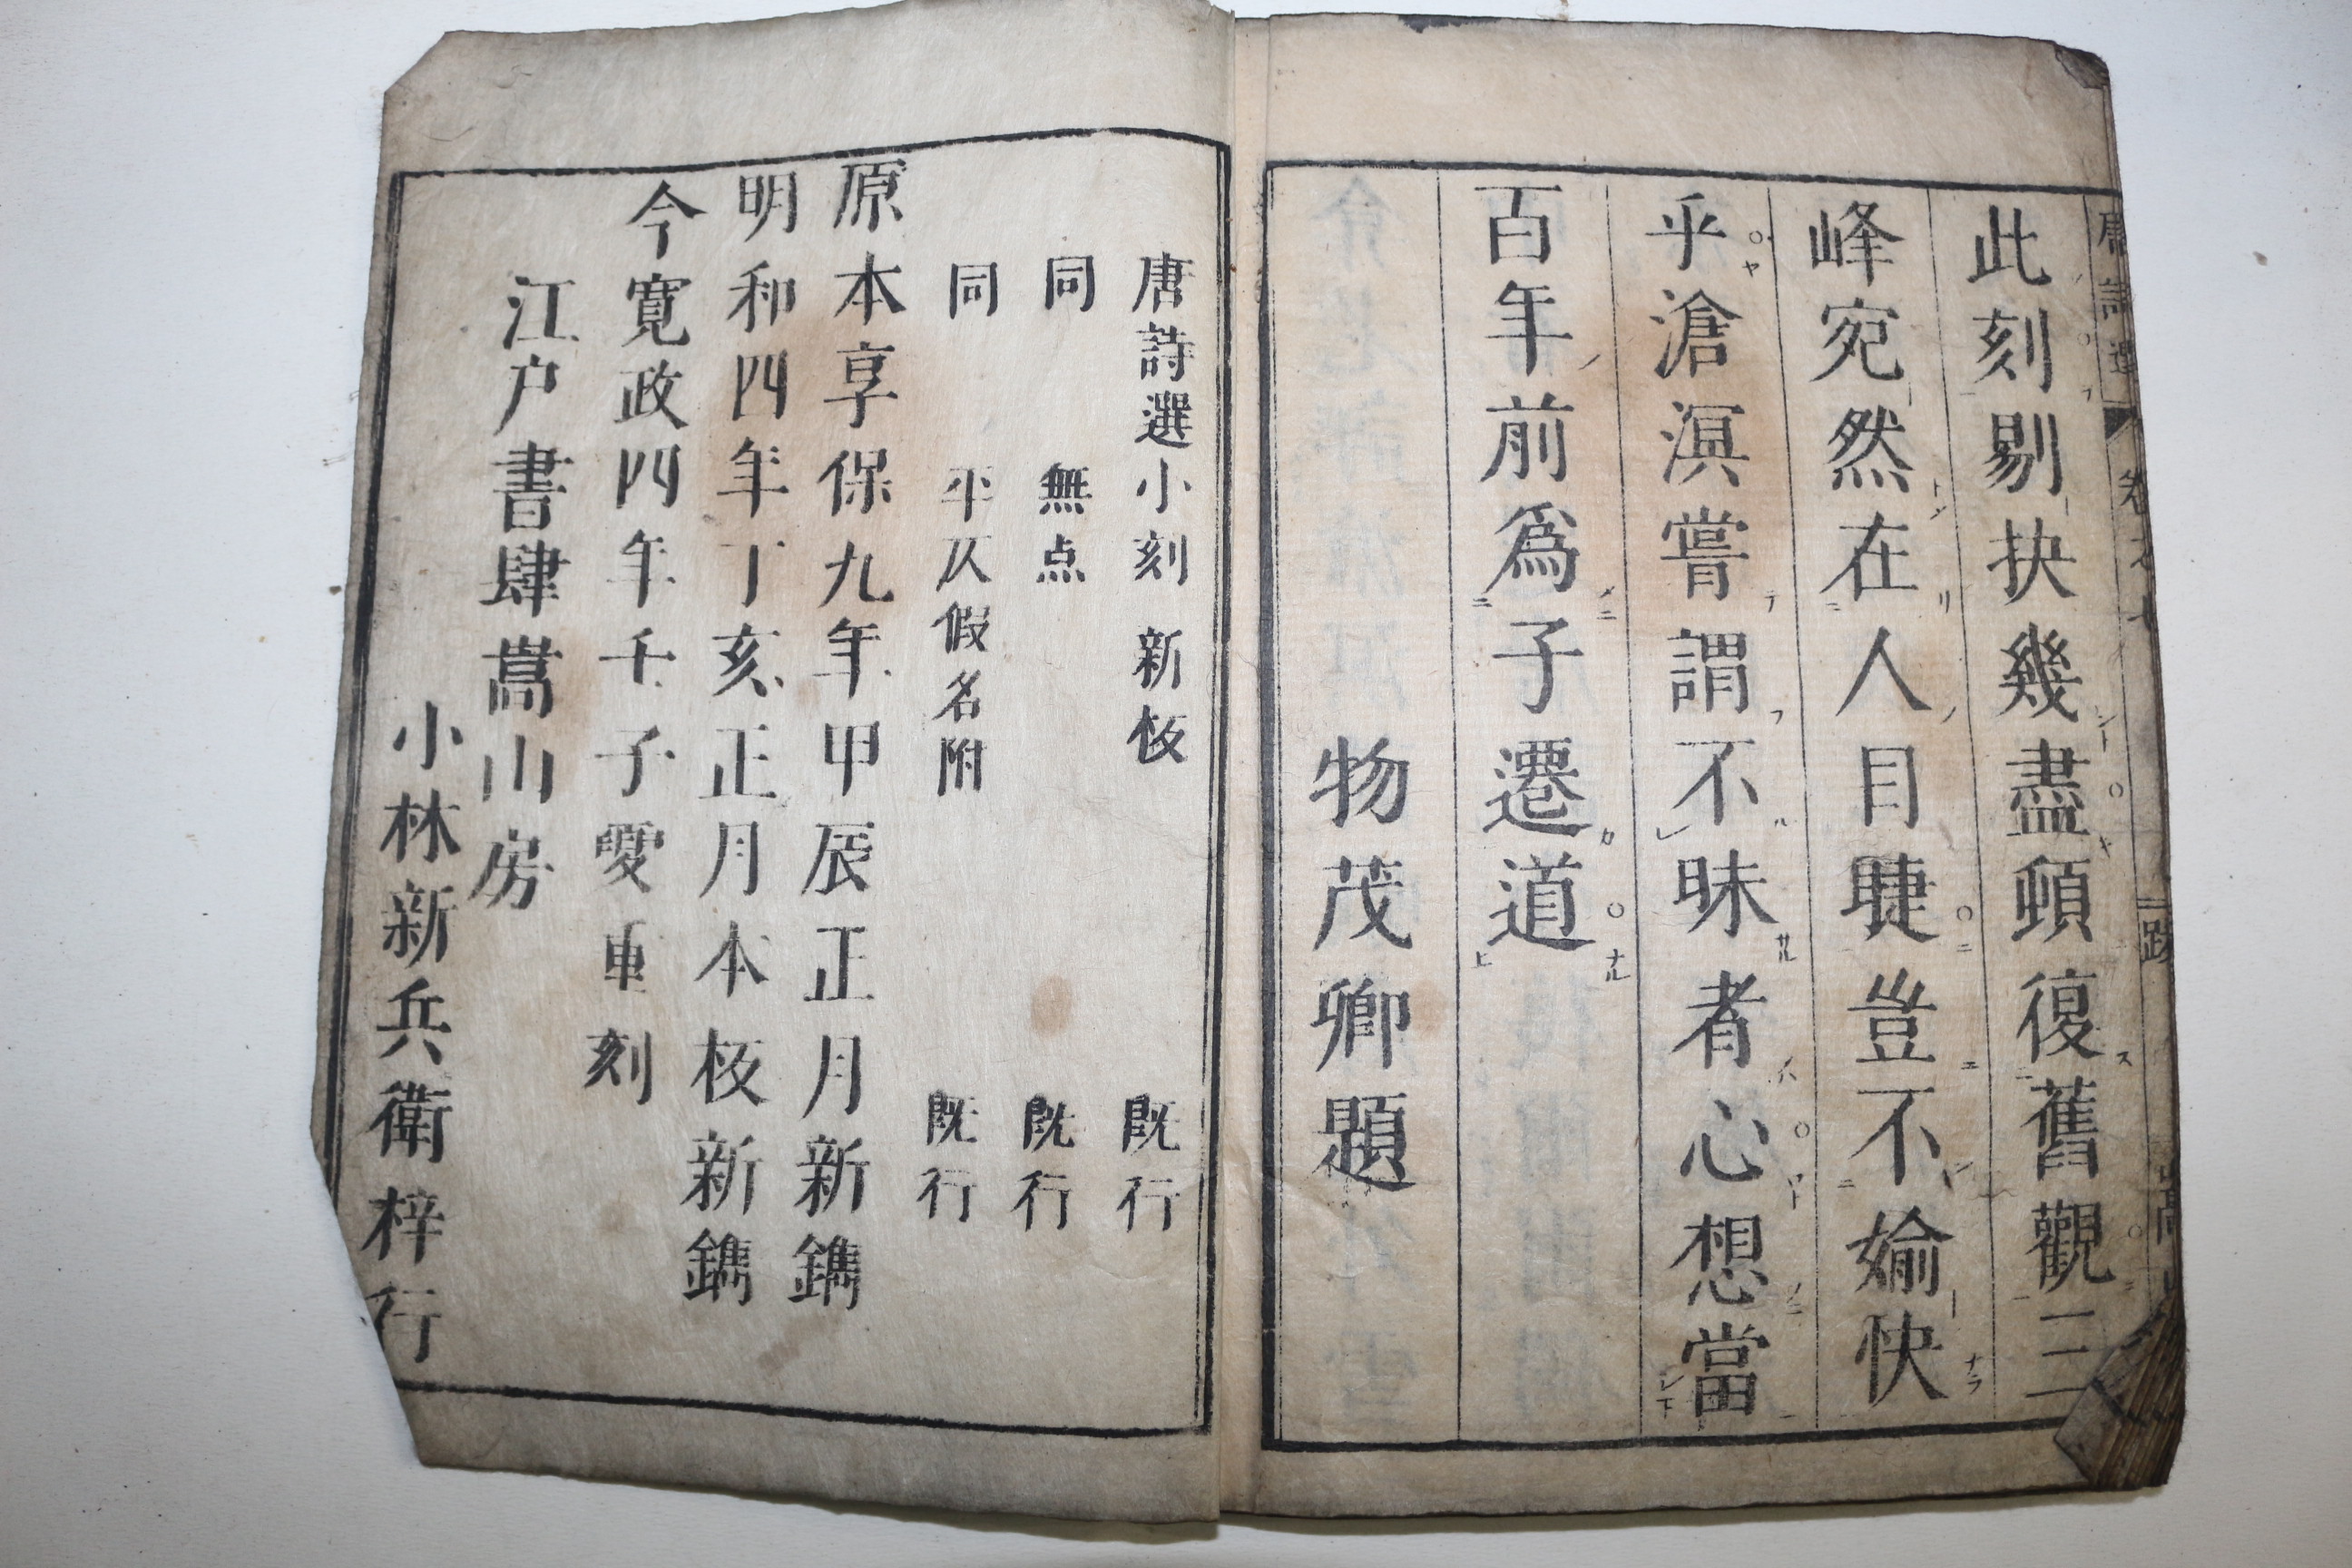 唐詩選 卷之七 跋 嵩山
此刻剔抉幾盡頓復舊觀三
峰宛然在人目睫豈不媮快
乎滄溟嘗謂不昧者心想當
百年前爲子遷道
物茂卿題
唐詩選小刻 新板 既行
同 無点 既行
同 平仄假名附 既行
原本享保九年甲辰正月新鐫
明和四年丁亥正月本板新鐫
今寬政四年壬子夏重刻
江户書肆嵩山房
小林新兵衛梓行